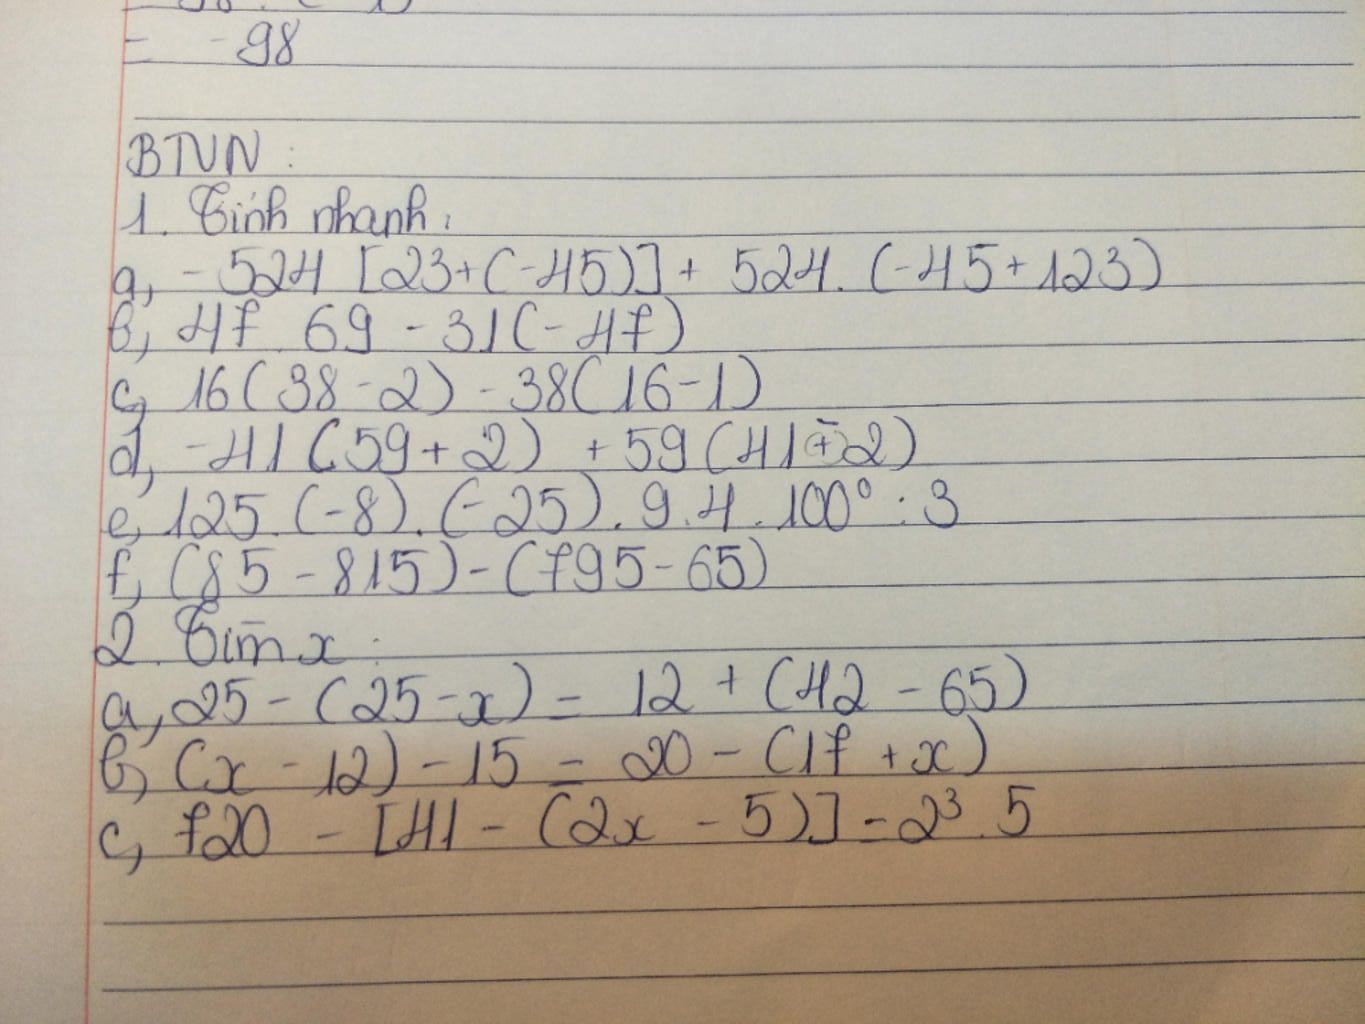 = -98
BTVN:
1. Tính nhanh:
a, -524 [23+(-45)] + 524.(-45+123)
b, 47.69 - 31(-47)
c, 16(38-2) - 38(16-1)
d, -41(59+2) + 59(41-2)
e, 125.(-8).(-25).9.4.100⁰:3
f, (85-815)-(795-65)
2. Tìm x:
a, 25-(25-x) = 12+(42-65)
b, (x-12)-15 = 20-(17+x)
c, 720 - [41-(2x-5)] = 2³.5